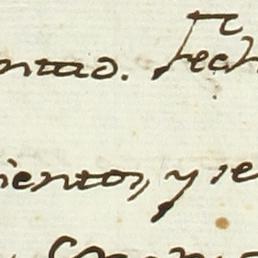 ntad. Fech
ientos, y se